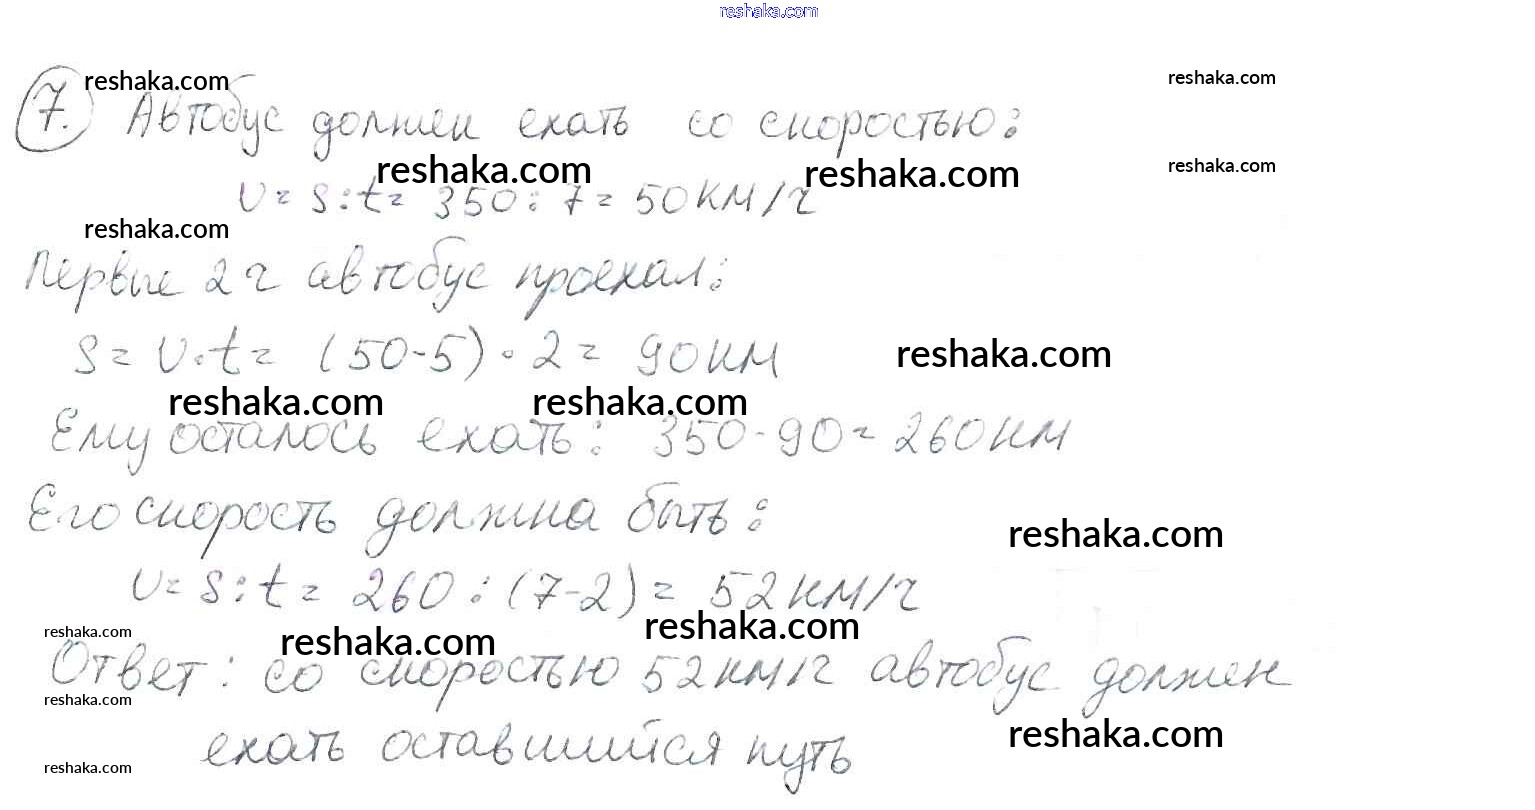 reshaka.com
reshaka.com
reshaka.com
7. Автобус должен ехать со скоростью:
reshaka.com
reshaka.com
reshaka.com
v = s : t = 350 : 7 = 50 км/ч
reshaka.com
Первые 2 ч автобус проехал:
s = v · t = (50 - 5) · 2 = 90 км
reshaka.com
reshaka.com
reshaka.com
Ему осталось ехать: 350 - 90 = 260 км
Его скорость должна быть:
reshaka.com
v = s : t = 260 : (7 - 2) = 52 км/ч
reshaka.com
reshaka.com
reshaka.com
Ответ: со скоростью 52 км/ч автобус должен
reshaka.com
reshaka.com
ехать оставшийся путь
reshaka.com